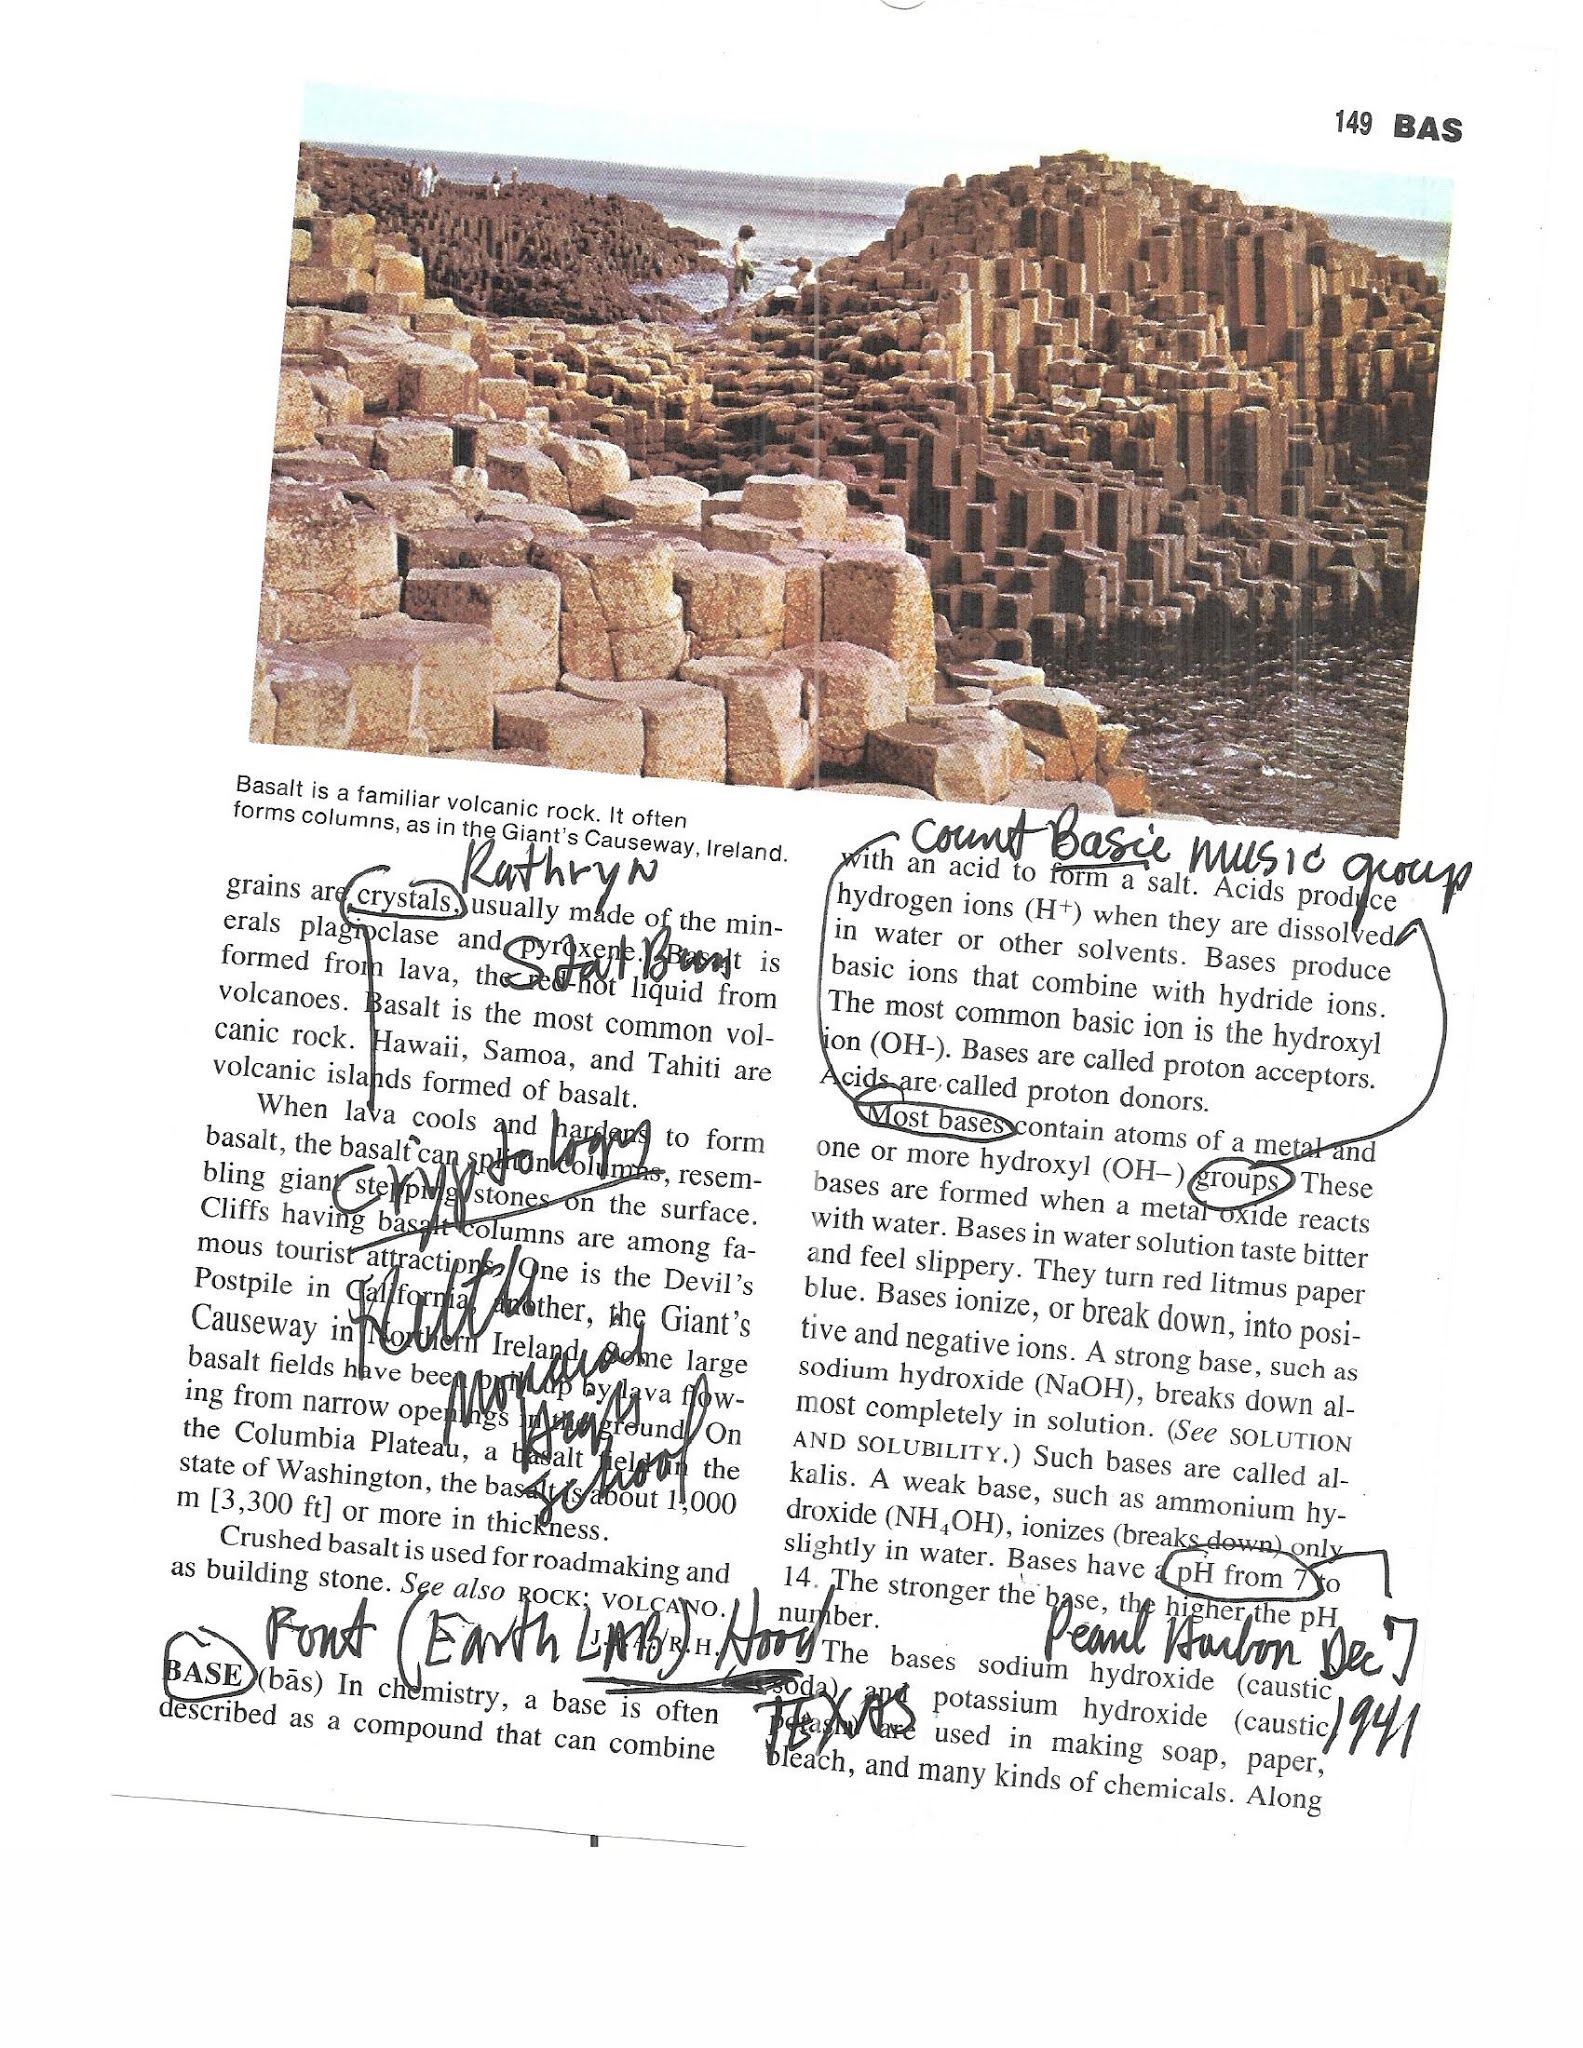 149 BAS
Basalt is a familiar volcanic rock. It often
forms columns, as in the Giant's Causeway, Ireland.
Kathryn
grains are crystals, usually made of the min-
erals plagioclase and pyroxene. Basalt is
formed from lava, the red-hot liquid from
volcanoes. Basalt is the most common vol-
canic rock. Hawaii, Samoa, and Tahiti are
volcanic islands formed of basalt.
When lava cools and hardens to form
cryptology
basalt, the basalt can split in columns, resem-
bling giant stepping stones on the surface.
Cliffs having basalt columns are among fa-
mous tourist attractions. One is the Devil's
Postpile in California, another, the Giant's
Causeway in Northern Ireland. Some large
basalt fields have been built up by lava flow-
ing from narrow openings in the ground. On
High
the Columbia Plateau, a basalt field in the
School
state of Washington, the basalt is about 1,000
m [3,300 ft] or more in thickness.
Crushed basalt is used for roadmaking and
as building stone. See also ROCK; VOLCANO.
R.H.
Font (Earth LAB) Hood
TEXAS
BASE (bās) In chemistry, a base is often
described as a compound that can combine
Count Basie music group
with an acid to form a salt. Acids produce
hydrogen ions (H+) when they are dissolved
in water or other solvents. Bases produce
basic ions that combine with hydride ions.
The most common basic ion is the hydroxyl
ion (OH-). Bases are called proton acceptors.
Acids are called proton donors.
Most bases contain atoms of a metal and
one or more hydroxyl (OH−) groups. These
bases are formed when a metal oxide reacts
with water. Bases in water solution taste bitter
and feel slippery. They turn red litmus paper
blue. Bases ionize, or break down, into posi-
tive and negative ions. A strong base, such as
sodium hydroxide (NaOH), breaks down al-
most completely in solution. (See SOLUTION
AND SOLUBILITY.) Such bases are called al-
kalis. A weak base, such as ammonium hy-
droxide (NH₄OH), ionizes (breaks down) only
slightly in water. Bases have a pH from 7 to
14. The stronger the base, the higher the pH
number.
Pearl Harbor Dec 7
1941
The bases sodium hydroxide (caustic
soda) and potassium hydroxide (caustic
potash) are used in making soap, paper,
bleach, and many kinds of chemicals. Along